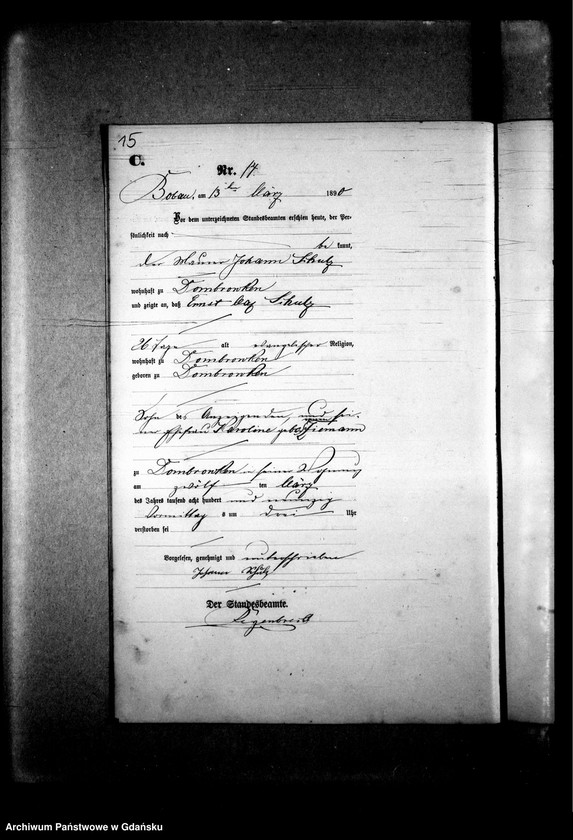 15
C.
Nr. 17.
Bobau, am 13ten März 1890
Vor dem unterzeichneten Standesbeamten erschien heute, der Per-
sönlichkeit nach
be kannt,
der Maurer Johann Schulz
wohnhaft zu Dombrowken
und zeigte an, daß Ernst Max Schulz
26 Tage alt evangelischer Religion,
wohnhaft zu Dombrowken
geboren zu Dombrowken
Sohn des Anzeigenden, und sei-
ner Ehefrau Karoline geborenen Ziemann
zu Dombrowken in seiner Wohnung
am zwölf ten März
des Jahres tausend acht hundert und neunzig
Vormittag s um drei Uhr
verstorben sei
Vorgelesen, genehmigt und unterschrieben
Johann Schulz
Der Standesbeamte.
Archiwum Państwowe w Gdańsku